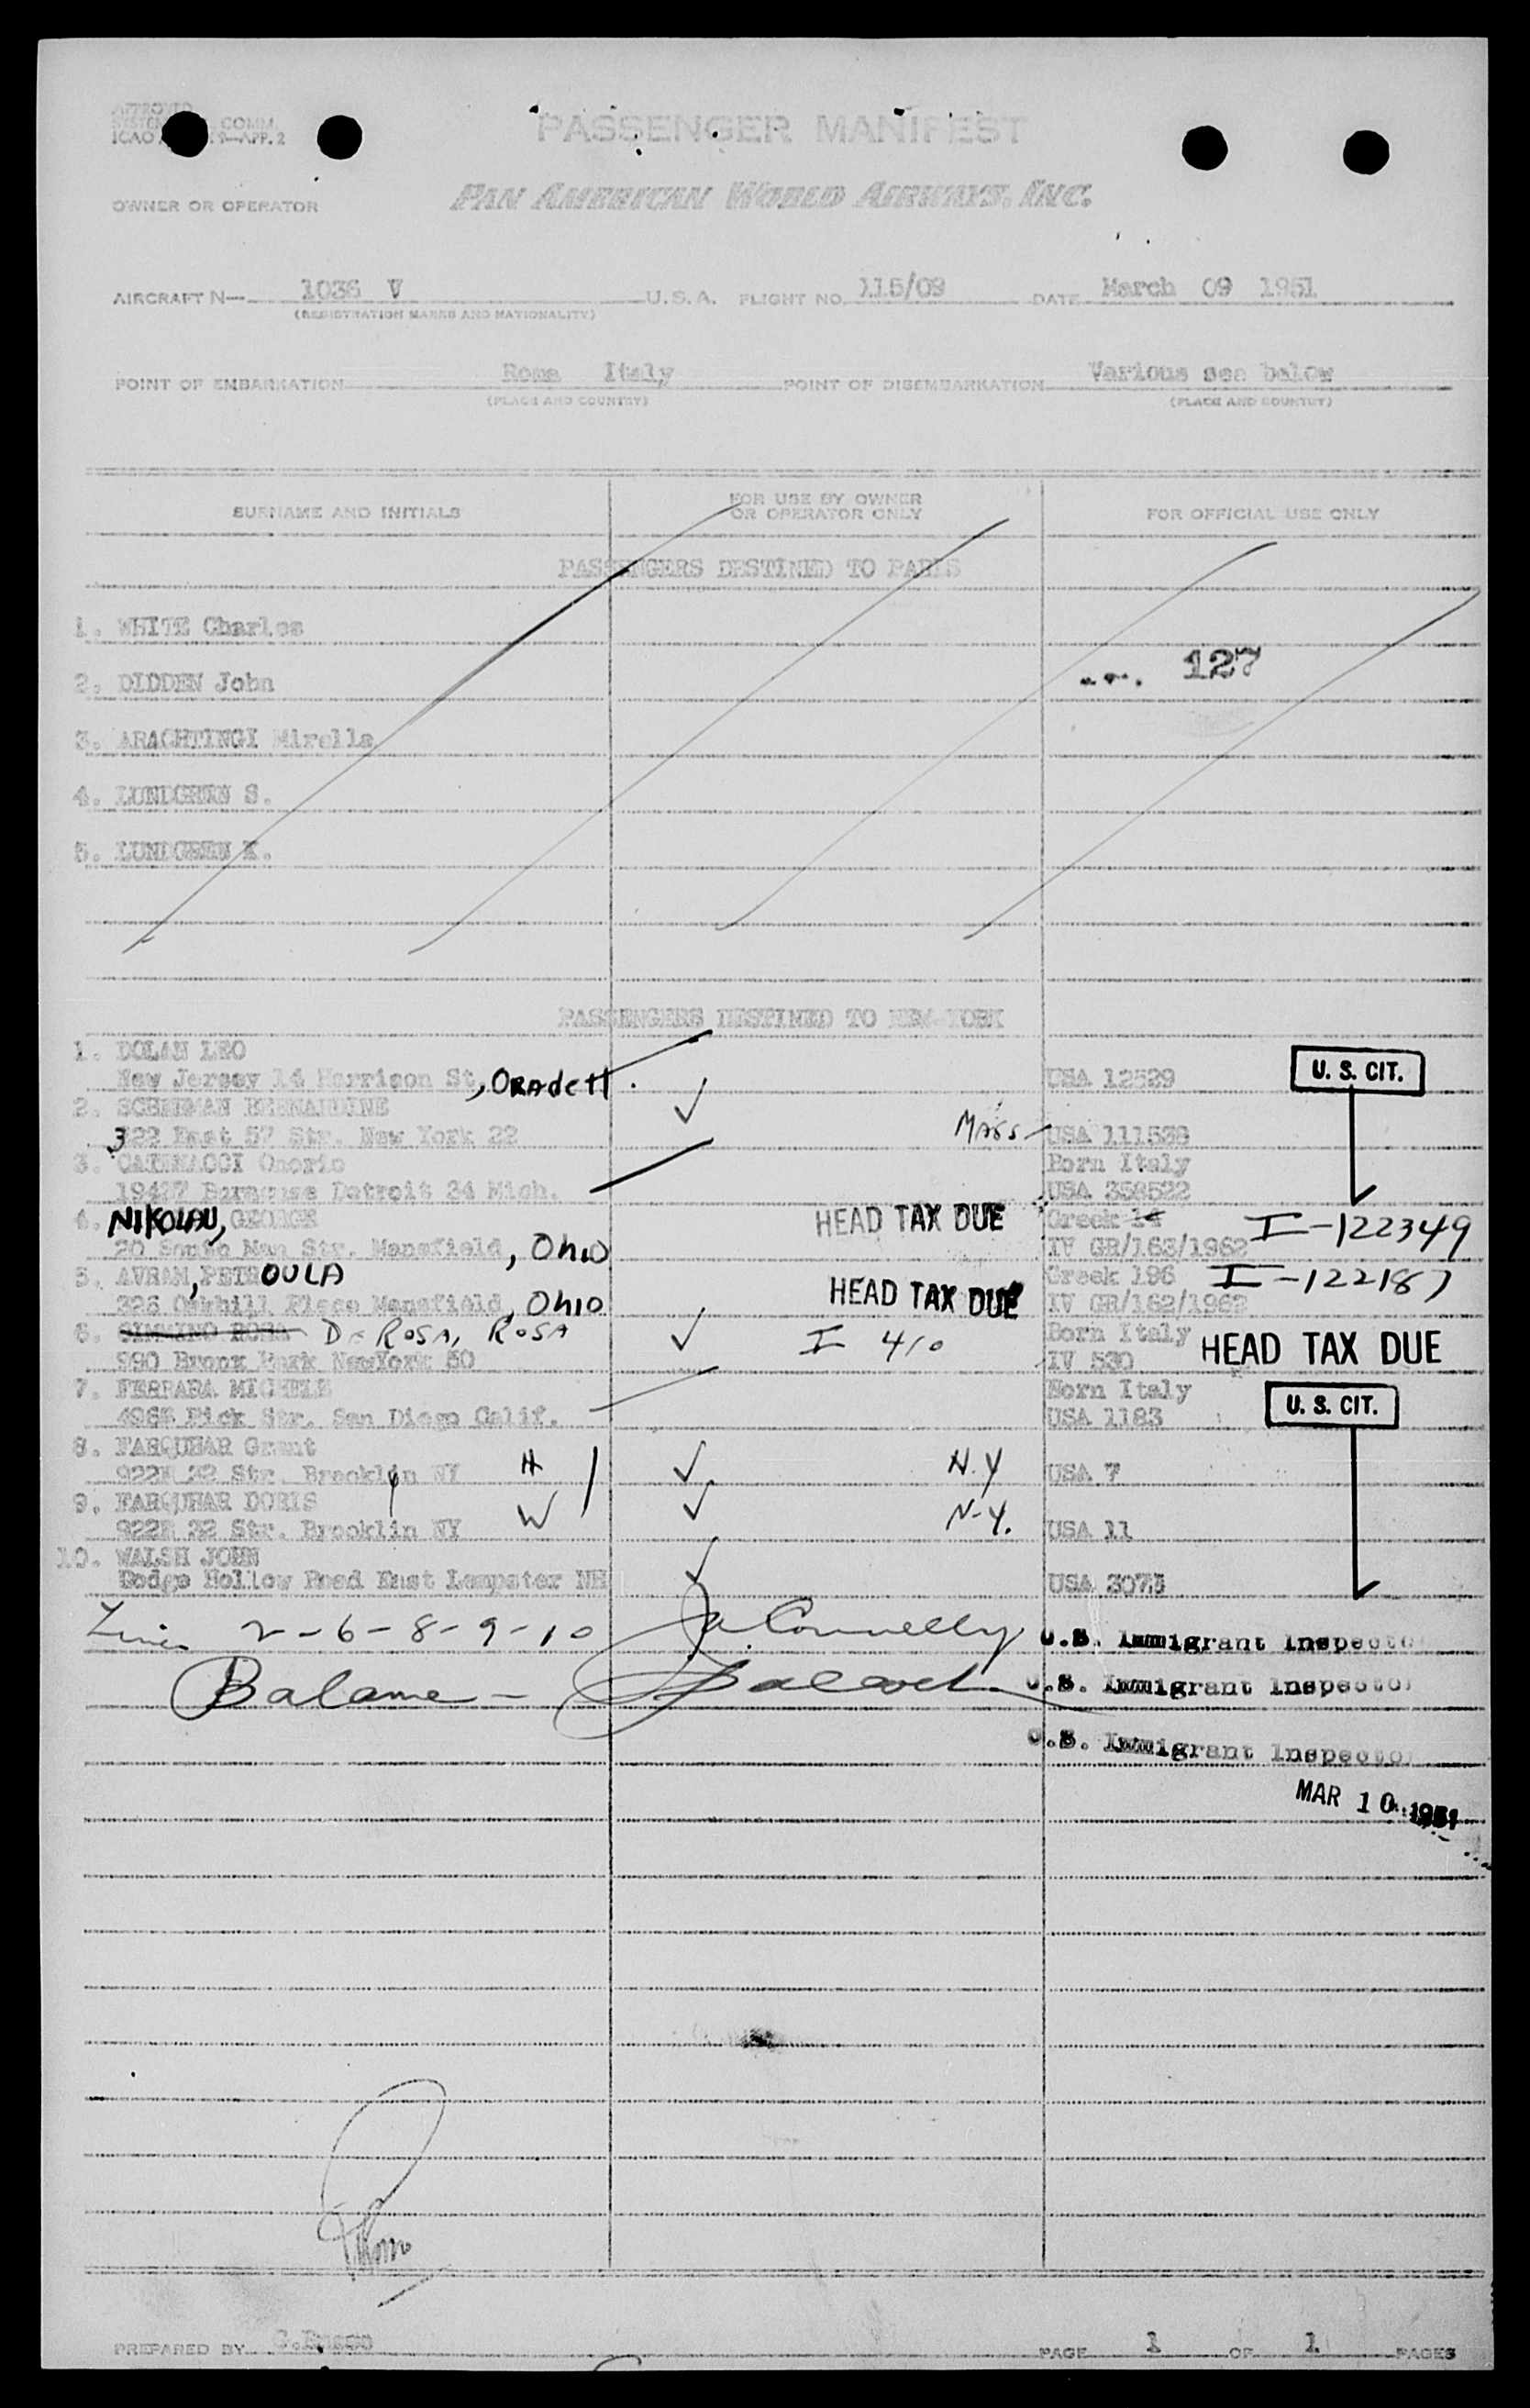 APPROVED
COMM.
ICAO 9—APP. 2
PASSENGER MANIFEST
OWNER OR OPERATOR PAN AMERICAN WORLD AIRWAYS, INC.
AIRCRAFT N— 1036 V U.S.A. FLIGHT NO. 115/09 DATE March 09 1951
(REGISTRATION MARKS AND NATIONALITY)
POINT OF EMBARKATION Rome Italy POINT OF DISEMBARKATION Various see below
(PLACE AND COUNTRY) (PLACE AND COUNTRY)
SURNAME AND INITIALS FOR USE BY OWNER OR OPERATOR ONLY FOR OFFICIAL USE ONLY
PASSENGERS DESTINED TO PARIS
1. WHITE Charles
127
2. DIDDEN John
3. ARACHTINGI Mirella
4. LUNDGREN S.
5. LUNDGREN K.
PASSENGERS DESTINED TO NEW-YORK
1. DOLAN LEO
New Jersey 14 Morrison St, ORAdell. USA 12529 U. S. CIT.
2. BERNARDINE
322 East 57 Str. New York 22 MASS USA 111538
3. CATENACCI Onorio Born Italy
Detroit 34 Mich. USA 358522
4. NIKOLAU, GEORGE HEAD TAX DUE Greek 14 I-122349
Str. Mansfield, Ohio IV GR/163/1962
5. AVRAM, PETROULA HEAD TAX DUE Greek 196 I-122187
326 Oakhill Place Mansfield, Ohio IV GR/162/1962
6. ROSA De ROSA, ROSA I 410 Born Italy HEAD TAX DUE
990 Bronx Park NewYork 60 IV 530
7. FERRARA MICHELE Born Italy U. S. CIT.
Str. San Diego Calif. USA 1183
8. FARQUHAR Grant
922E 22 Str. Brooklyn NY H N.Y USA 7
9. FARQUHAR DORIS
922E 22 Str. Brooklin NY W N-Y. USA 11
10. WALSH JOHN
Dodge Hollow Road East Lempster NH USA 3075
Lines 2-6-8-9-10 Connelly U.S. Immigrant Inspector
Balance - U.S. Immigrant Inspector
U.S. Immigrant Inspector
MAR 10 1951
PREPARED BY PAGE 1 OF 1 PAGES